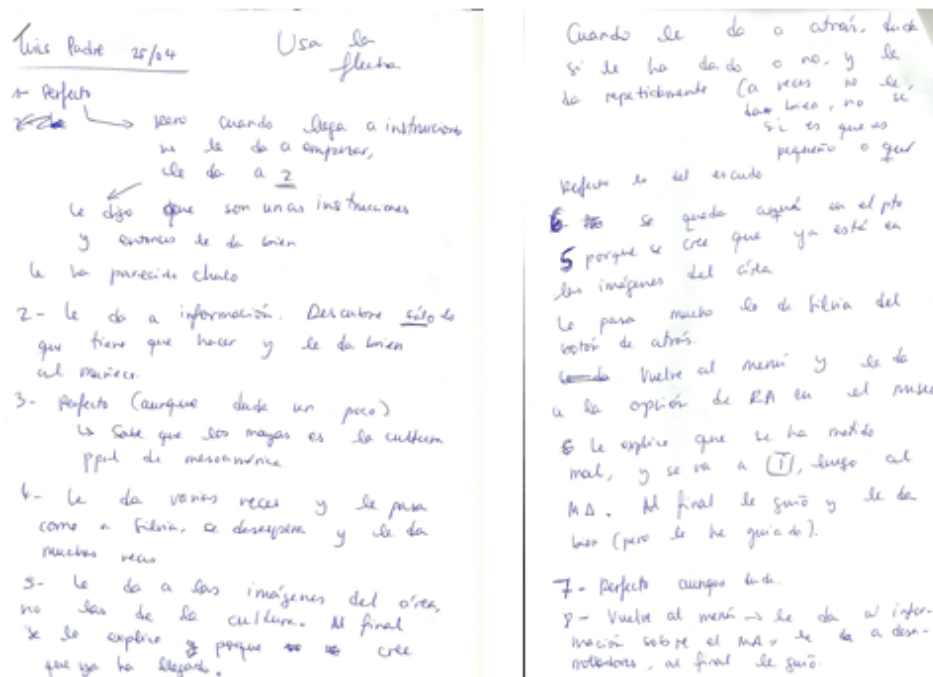 Luis Padre 25/04
Usa la
flecha
1- Perfecto
pero cuando llega a instrucciones
no le da a empezar,
le da a 2
Le digo que son unas instrucciones
y entonces le da bien
Le ha parecido chulo
2- Le da a información. Descubre sólo lo
que tiene que hacer y le da bien
al muñeco
3- Perfecto (aunque duda un poco)
↳ Sabe que los mayas es la cultura
ppal de mesoamérica
4- Le da varias veces y le pasa
como a Silvia, se desespera y le da
muchas veces
5- Le da a las imágenes del área,
no las de la cultura. Al final
se lo explico y porque cree
que ya ha llegado.
Cuando le da a atrás, duda
si le ha dado o no, y le
da repetidamente (a veces no le
da bien, no se
si es que es
pequeño o qué
Perfecto lo del escudo
6- se queda en el pto
5 porque se cree que ya está en
las imágenes del área
Le pasa mucho lo de Silvia del
botón de atrás.
Vuelve al menú y le da
a la opción de RA en el museo
6 Le explico que se ha metido
mal, y se va a i, luego al
MA. Al final le guío y le da
bien (pero le he guiado).
7- Perfecto aunque duda.
8- Vuelve al menú → le da a infor-
mación sobre el MA, le da a desa-
rrolladores, al final le guío.